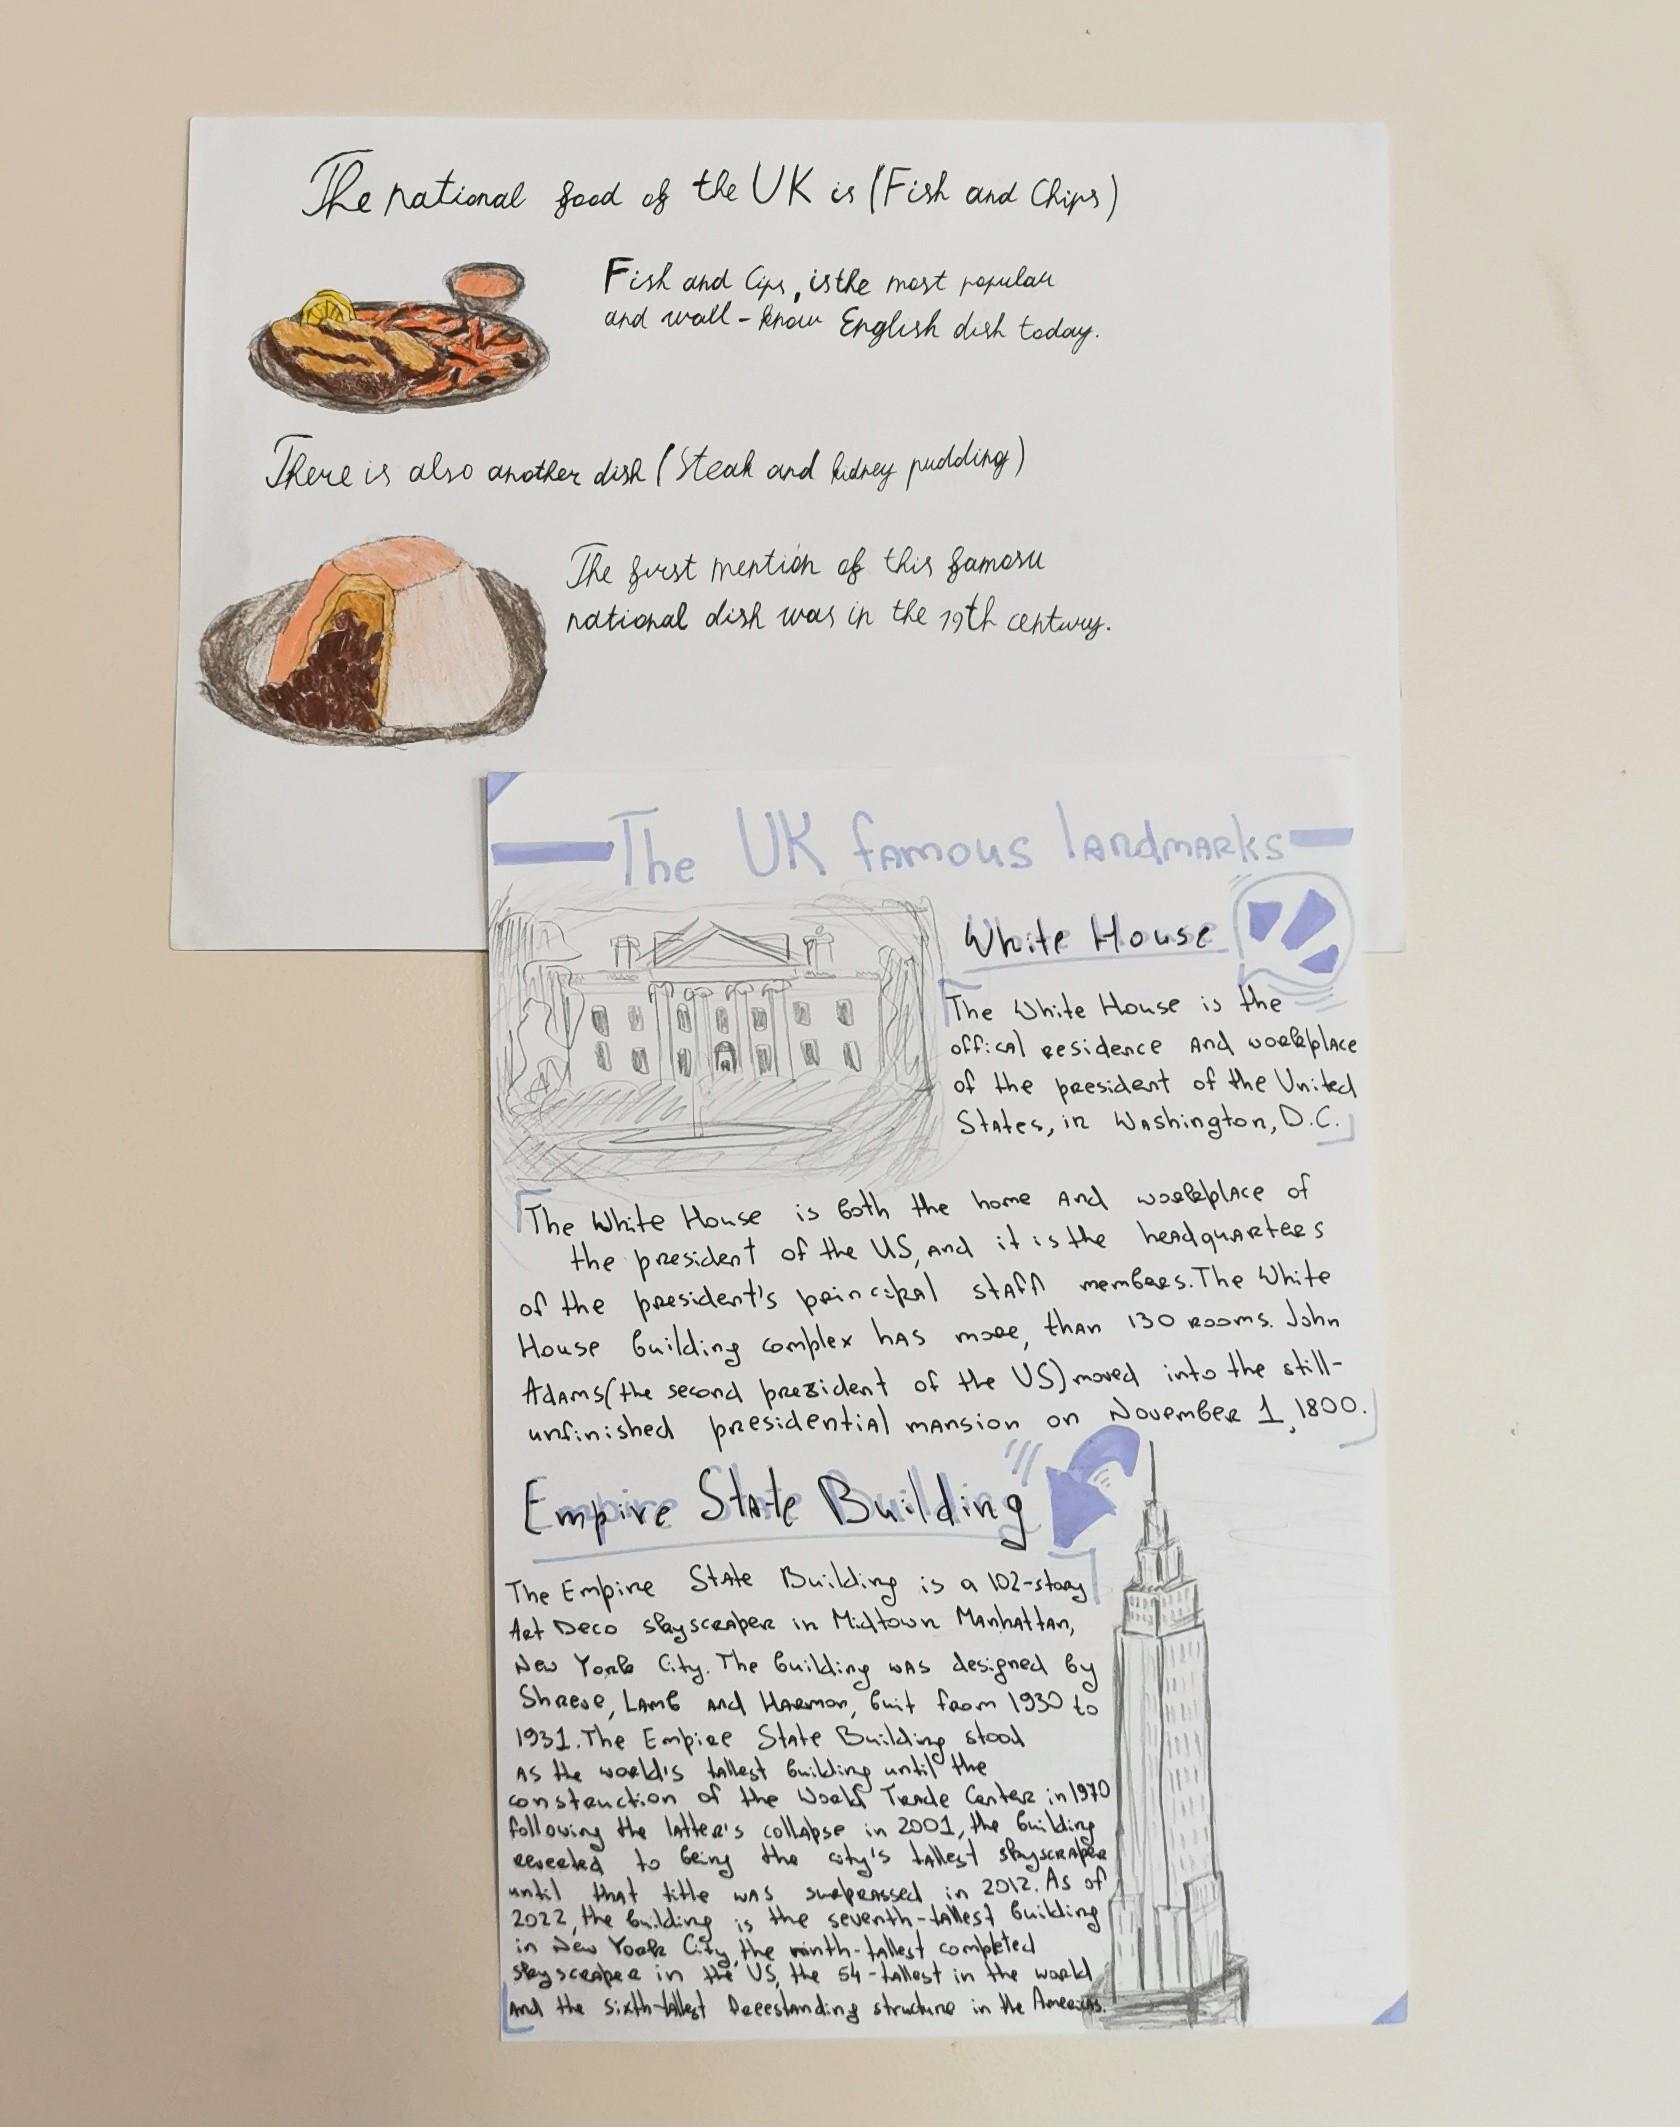 The national food of the UK is (Fish and Chips)
Fish and Cips, is the most popular
and wall-know English dish today.
There is also another dish (Steak and kidney pudding)
The first mention of this famosu
national dish was in the 19th century.
The UK famous landmarks
White House
The White House is the
offical residence and workplace
of the president of the United
States, in Washington, D.C.
The White House is both the home and workplace of
the president of the US, and it is the headquarters
of the president's principal staff members. The White
House building complex has more, than 130 rooms. John
Adams (the second prezident of the US) moved into the still-
unfinished presidential mansion on November 1, 1800.
Empire State Building
The Empire State Building is a 102-story
Art Deco skyscraper in Midtown Manhattan,
New York City. The building was designed by
Shreve, Lamb and Harmon, buit from 1930 to
1931. The Empire State Building stood
as the world's tallest building until the
construction of the World Trade Center in 1970
following the latter's collapse in 2001, the building
reverted to being the city's tallest skyscraper
until that title was surprassed in 2012. As of
2022, the building is the seventh-tallest building
in New York City, the ninth-tallest completed
skyscraper in the US, the 54-tallest in the world
and the sixth-tallest freestanding structure in the Americas.